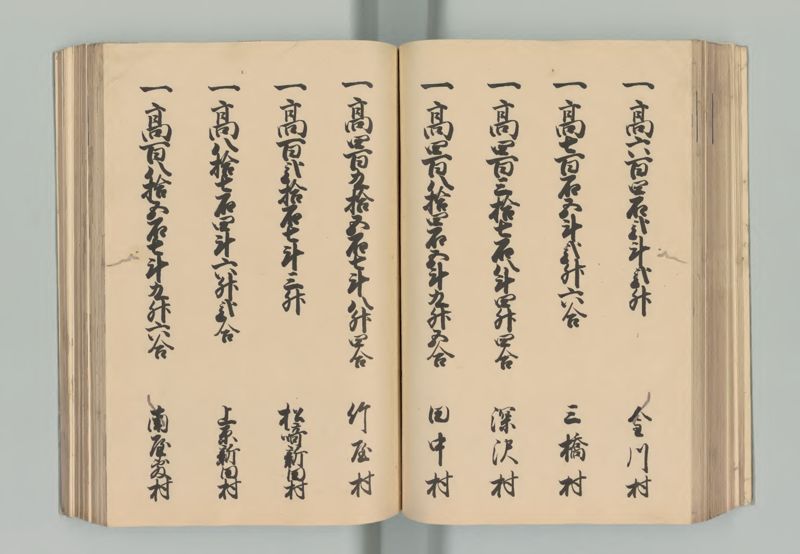 一高六百四石弐斗弐升 金川村
一高七百石五斗弐升六合 三橋村
一高四百三拾七石八斗四升四合 深沢村
一高四百八拾四石五斗九升五合 田中村
一高四百九拾五石七斗八升四合 竹屋村
一高百弐拾石七斗三升 松崎新田村
一高八拾七石四斗六升弐合 上京新田村
一高百八拾五石七斗九升六合 南屋敷村